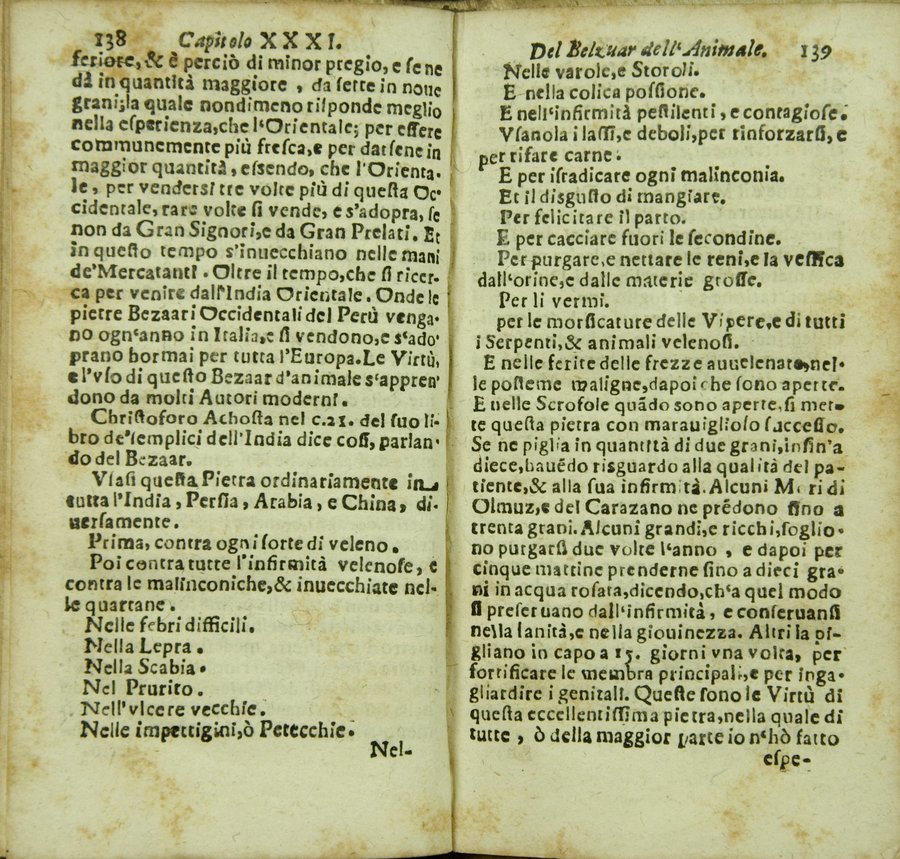 138 Capitolo XXXI.
feriore, & è perciò di minor pregio, e ſe ne
dà in quantità maggiore, da ſette in noue
grani; la quale nondimeno riſponde meglio
nella eſperienza, che l'Orientale; per eſſere
communemente più freſca, e per darſene in
maggior quantità, eſsendo, che l'Orienta-
le, per venderſi tre volte più di queſta Oc-
cidentale, rare volte ſi vende, e s'adopra, ſe
non da Gran Signori, e da Gran Prelati. Et
in queſto tempo s'inuecchiano nelle mani
de'Mercatanti. Oltre il tempo, che ſi ricer-
ca per venire dall'India Orientale. Onde le
pietre Bezaari Occidentali del Perù venga-
no ogn'anno in Italia, e ſi vendono, e s'ado-
prano hormai per tutta l'Europa. Le Virtù,
e l'vſo di queſto Bezaar d'animale s'appren-
dono da molti Autori moderni.
Chriſtoforo Achoſta nel c.21. del ſuo li-
bro de'ſemplici dell'India dice coſi, parlan-
do del Bezaar.
Vſaſi queſta Pietra ordinariamente in
tutta l'India, Perſia, Arabia, e China, di-
uerſamente.
Prima, contra ogni ſorte di veleno.
Poi contra tutte l'infirmità velenoſe, e
contra le malinconiche, & inuecchiate nel-
le quartane.
Nelle febri difficili.
Nella Lepra.
Nella Scabia.
Nel Prurito.
Nell'vlcere vecchie.
Nelle impettigini, ò Petecchie.
Nel-
Del Belzuar dell'Animale. 139
Nelle varole, e Storoli.
E nella colica poſſione.
E nell'infirmità peſtilenti, e contagioſe.
Vſanola i laſſi, e deboli, per rinforzarſi, e
per rifare carne.
E per iſradicare ogni malinconia.
Et il diſguſto di mangiare.
Per felicitare il parto.
E per cacciare fuori le ſecondine.
Per purgare, e nettare le reni, e la veſſica
dall'orine, e dalle materie groſſe.
Per li vermi.
per le morſicature delle Vipere, e di tutti
i Serpenti, & animali velenoſi.
E nelle ferite delle frezze auuelenate, nel-
le poſteme maligne, dapoi che ſono aperte.
E nelle Scrofole quãdo sono aperte, ſi met-
te queſta pietra con marauiglioſo ſucceſſo.
Se ne piglia in quantità di due grani, inſin'a
diece, hauẽdo risguardo alla qualità del pa-
tiente, & alla ſua infirmità. Alcuni Mori di
Olmuz, e del Carazano ne prẽdono fino a
trenta grani. Alcuni grandi, e ricchi, ſoglio-
no purgarſi due volte l'anno, e dapoi per
cinque mattine prenderne ſino a dieci gra-
ni in acqua roſata, dicendo, ch'a quel modo
ſi preſeruano dall'infirmità, e conſeruanſi
nella ſanità, e nella giouinezza. Altri la pi-
gliano in capo a 15. giorni vna volta, per
fortificare le membra principali, e per inga-
gliardire i genitali. Queſte ſono le Virtù di
queſta eccellentiſſima pietra, nella quale di
tutte, ò della maggior parte io n'hò fatto
eſpe-